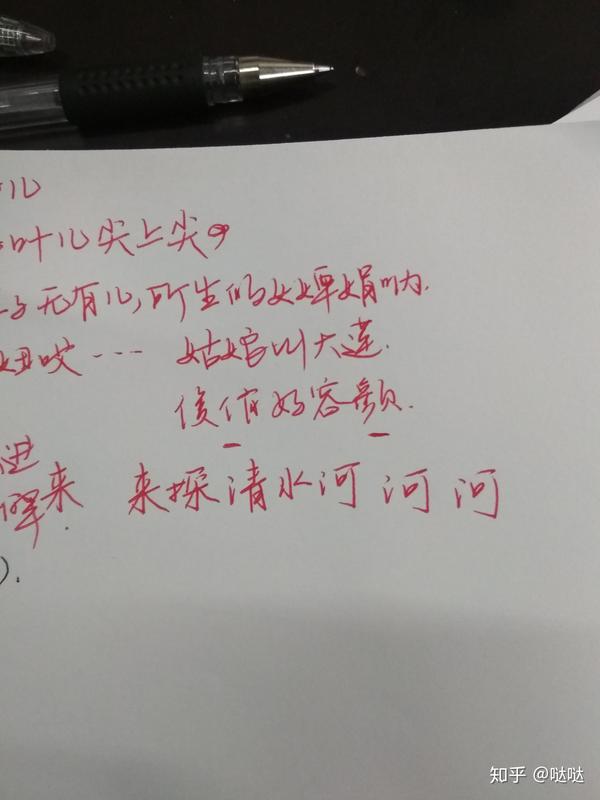 儿
叶儿尖上尖
子无有儿,所生的女婵娟呐.
妞哎… 姑娘叫大莲.
俊俏好容颜.
进
来 来探清水河 河 河
).
知乎 @哒哒